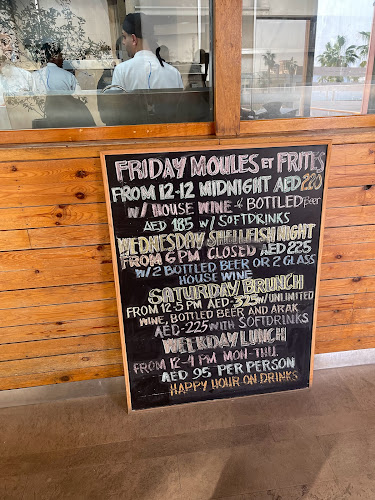 FRIDAY MOULES ET FRITES
FROM 12-12 MIDNIGHT AED 220
W/ HOUSE WINE & BOTTLED Beer
AED 185 W/ SOFTDRINKS
WEDNESDAY SHELLFISH NIGHT
FROM 6 PM CLOSED AED 225
W/ 2 BOTTLED BEER OR 2 GLASS
HOUSE WINE
SATURDAY BRUNCH
FROM 12-5 PM AED 325 W/ UNLIMITED
WINE, BOTTLED BEER AND ARAK
AED-225 WITH SOFTDRINKS
WEEKDAY LUNCH
FROM 12-4 PM MON-THU.
AED 95 PER PERSON
HAPPY HOUR ON DRINKS